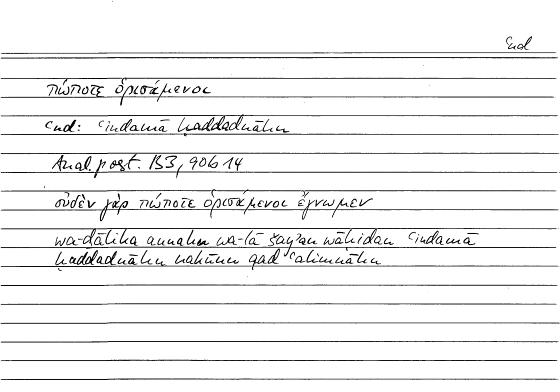 ʿnd
πώποτε ὁρισάμενοι
ʿnd: ʿindamā ḥaddadnāhu
Anal. post. B3, 90b14
οὐδὲν γὰρ πώποτε ὁρισάμενοι ἔγνωμεν
wa-ḏālika annahu wa-lā šayʾan wāḥidan ʿindamā
ḥaddadnāhu nakūnu qad ʿalimnāhu